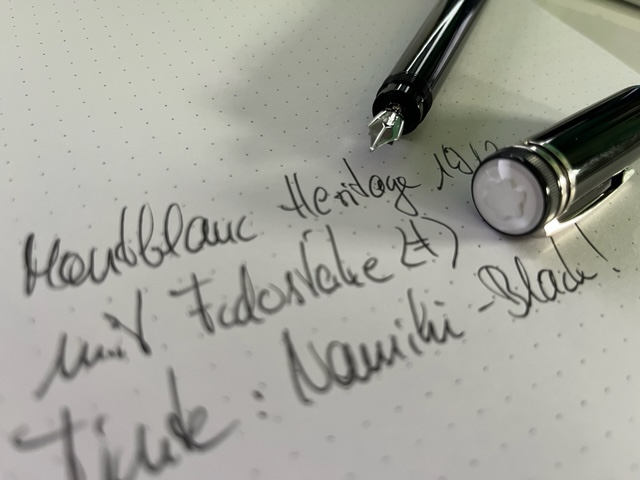 Montblanc Heritage 1912
mit Federstärke (F)
Tinte: Namiki-Black!